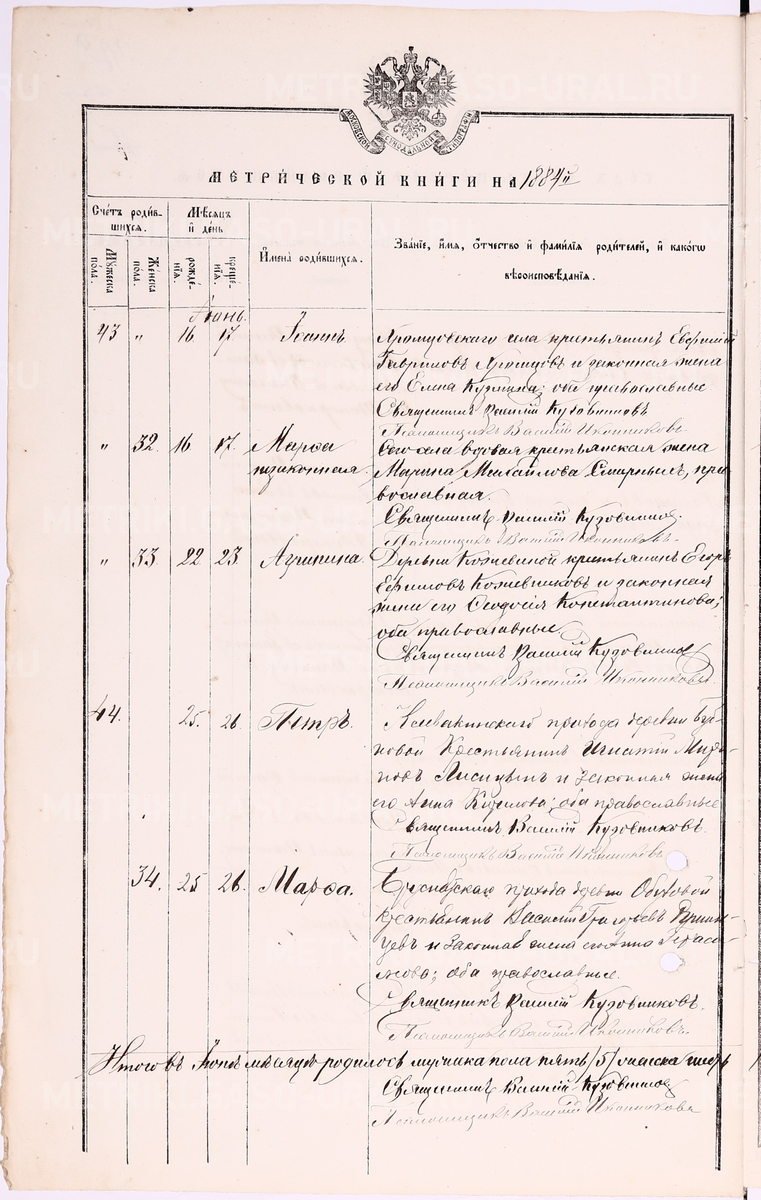 МОСКОВСКОЙ СѴНОДАЛЬНОЙ ТИПОГРАФІИ
МЕТРИ́ЧЕСКОЙ КНИ́ГИ НА 1884й
Сче́тъ роди́в-
шихсѧ.
Мꙋ́жеска по́ла.
Же́нска по́ла.
Мѣ́сѧцъ
и҆ де́нь
рожде́-
нїѧ.
креще́-
нїѧ.
И҆мена̀ роди́вшихсѧ.
Зва́нїе, и҆́мѧ, ѻ҆́тчество и҆ фами́лїѧ роди́телей, и҆ како́гѡ
вѣроисповѣ́данїѧ.
Іюнь.
43 " 16 17 Іоаннъ
села крестьянинъ Евфимій
Гавриловъ и законная жена
его Елена Кузмина; оба православные
Священникъ Василій Кузовниковъ
Псаломщикъ Василій Иконниковъ
" 32 16 17 Марѳа
незаконная.
Сего села вдовая крестьянская жена
Марина Михайлова Смирныхъ, пра-
вославная.
Священникъ Василій Кузовниковъ
Псаломщикъ Василій Иконниковъ.
" 33 22 23 Агрипина.
Деревни Кожевиной крестьянинъ Егоръ
Ефимовъ Кожевниковъ и законная
жена его Ѳеодосія Константинова;
оба православные.
Священникъ Василій Кузовниковъ
Псаломщикъ Василій Иконниковъ.
44. 25. 26. Петръ.
прихода деревни
крестьянинъ Игнатій
Лисицынъ и законная жена
его Анна Кирилова; оба православные
Священникъ Василій Кузовниковъ.
Псаломщикъ Василій Иконниковъ
34. 25 26. Марѳа.
прихода деревни
крестьянинъ Василій Григорьевъ
и законная жена его Анна Гераси-
мова; оба православные.
Священникъ Василій Кузовниковъ.
Псаломщикъ Василій Иконниковъ.
Итого въ Іюнѣ мѣсяцѣ родилось мужска пола пять /5/ женска
Священникъ Василій Кузовниковъ
Псаломщикъ Василій Иконниковъ
METRICS.GASO-URAL.RU